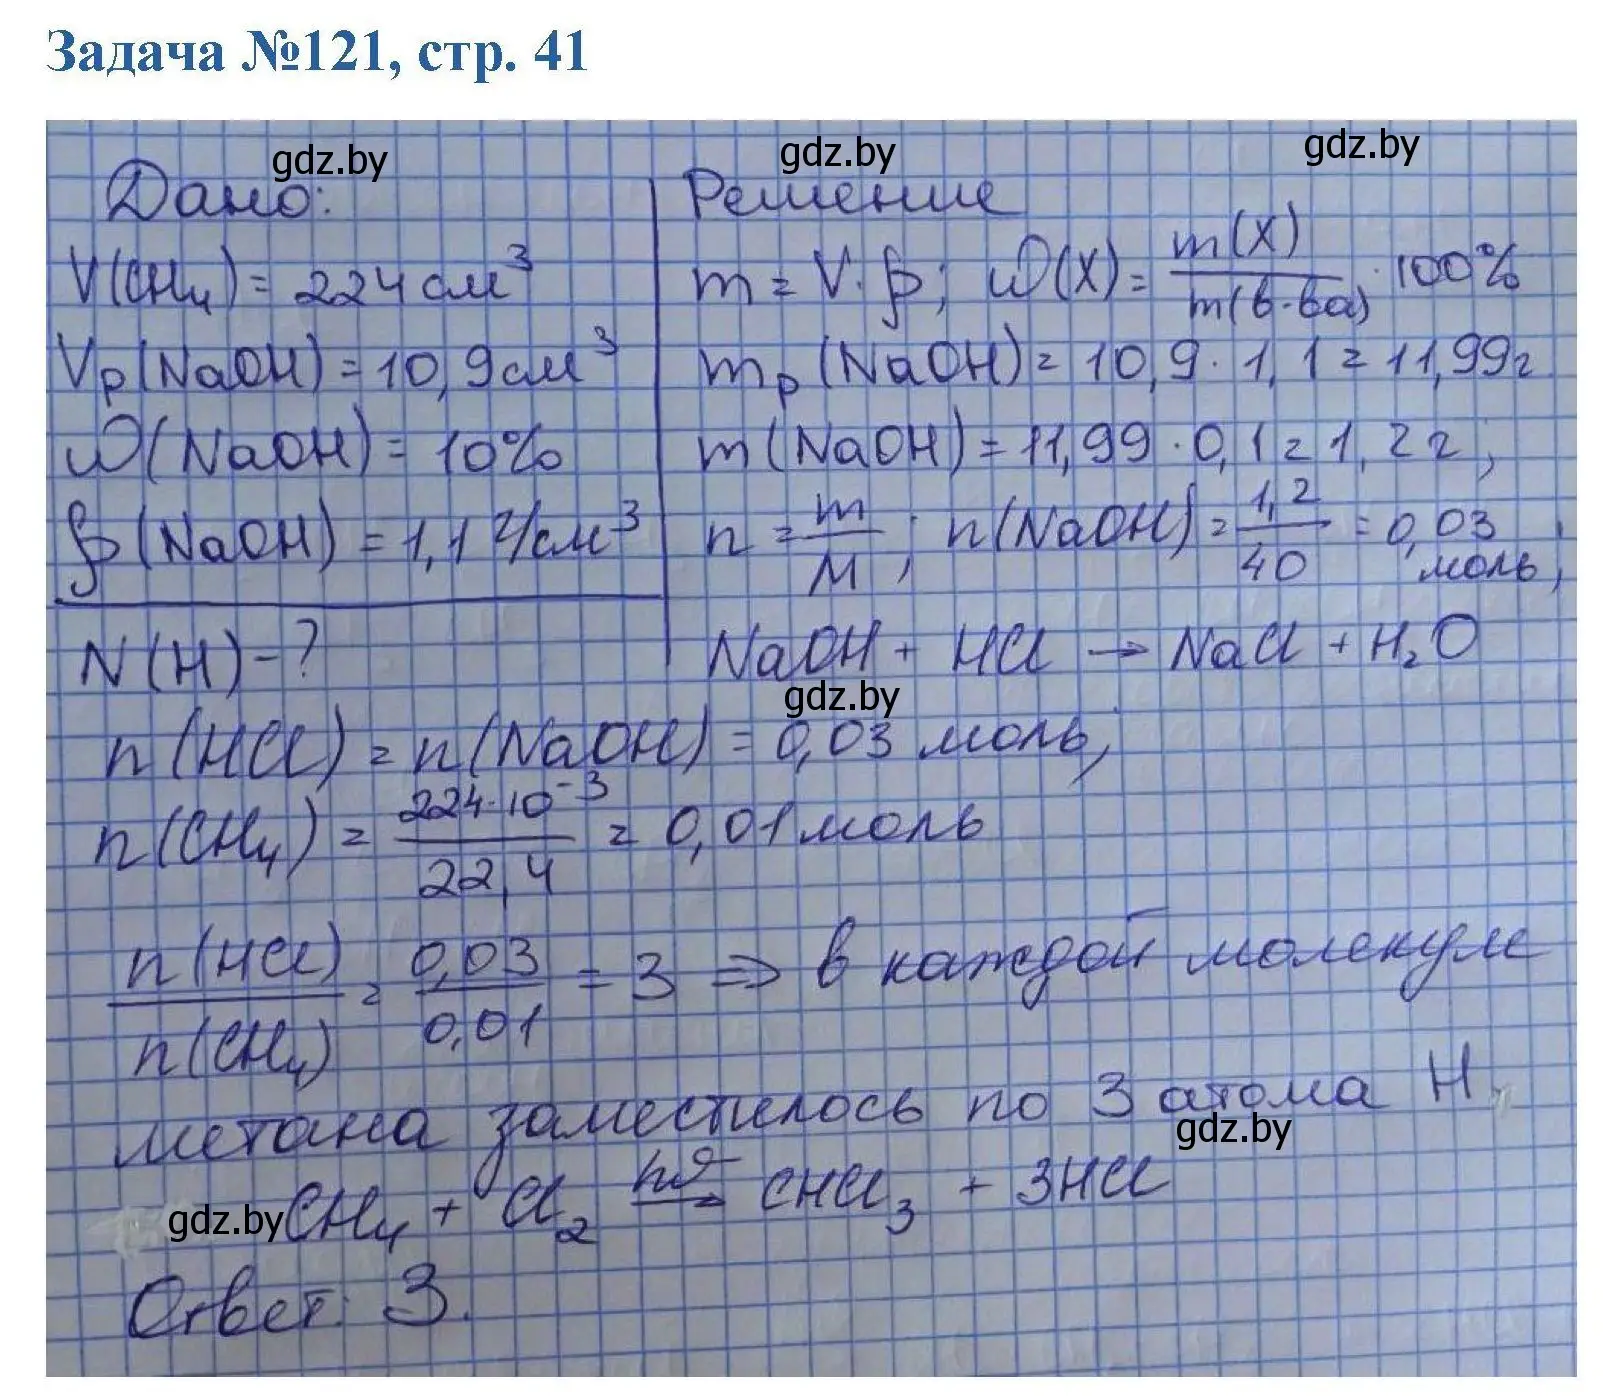 Задача №121, стр. 41
gdz.by gdz.by gdz.by
Дано:
V(CH₄) = 224 см³
Vр(NaOH) = 10,9 см³
ω(NaOH) = 10%
ρ(NaOH) = 1,1 г/см³
N(H) - ?
Решение
m = V·ρ; ω(X) = m(X)/m(в-ва) · 100%
mр(NaOH) = 10,9 · 1,1 = 11,99 г
m(NaOH) = 11,99 · 0,1 = 1,2 г;
n = m/M; n(NaOH) = 1,2/40 = 0,03 моль;
NaOH + HCl → NaCl + H₂O
gdz.by
n(HCl) = n(NaOH) = 0,03 моль;
n(CH₄) = 224·10⁻³/22,4 = 0,01 моль
n(HCl)/n(CH₄) = 0,03/0,01 = 3 ⇒ в каждой молекуле
метана заместилось по 3 атома H.
gdz.by
gdz.by
CH₄ + Cl₂ hν→ CHCl₃ + 3HCl
Ответ: 3.